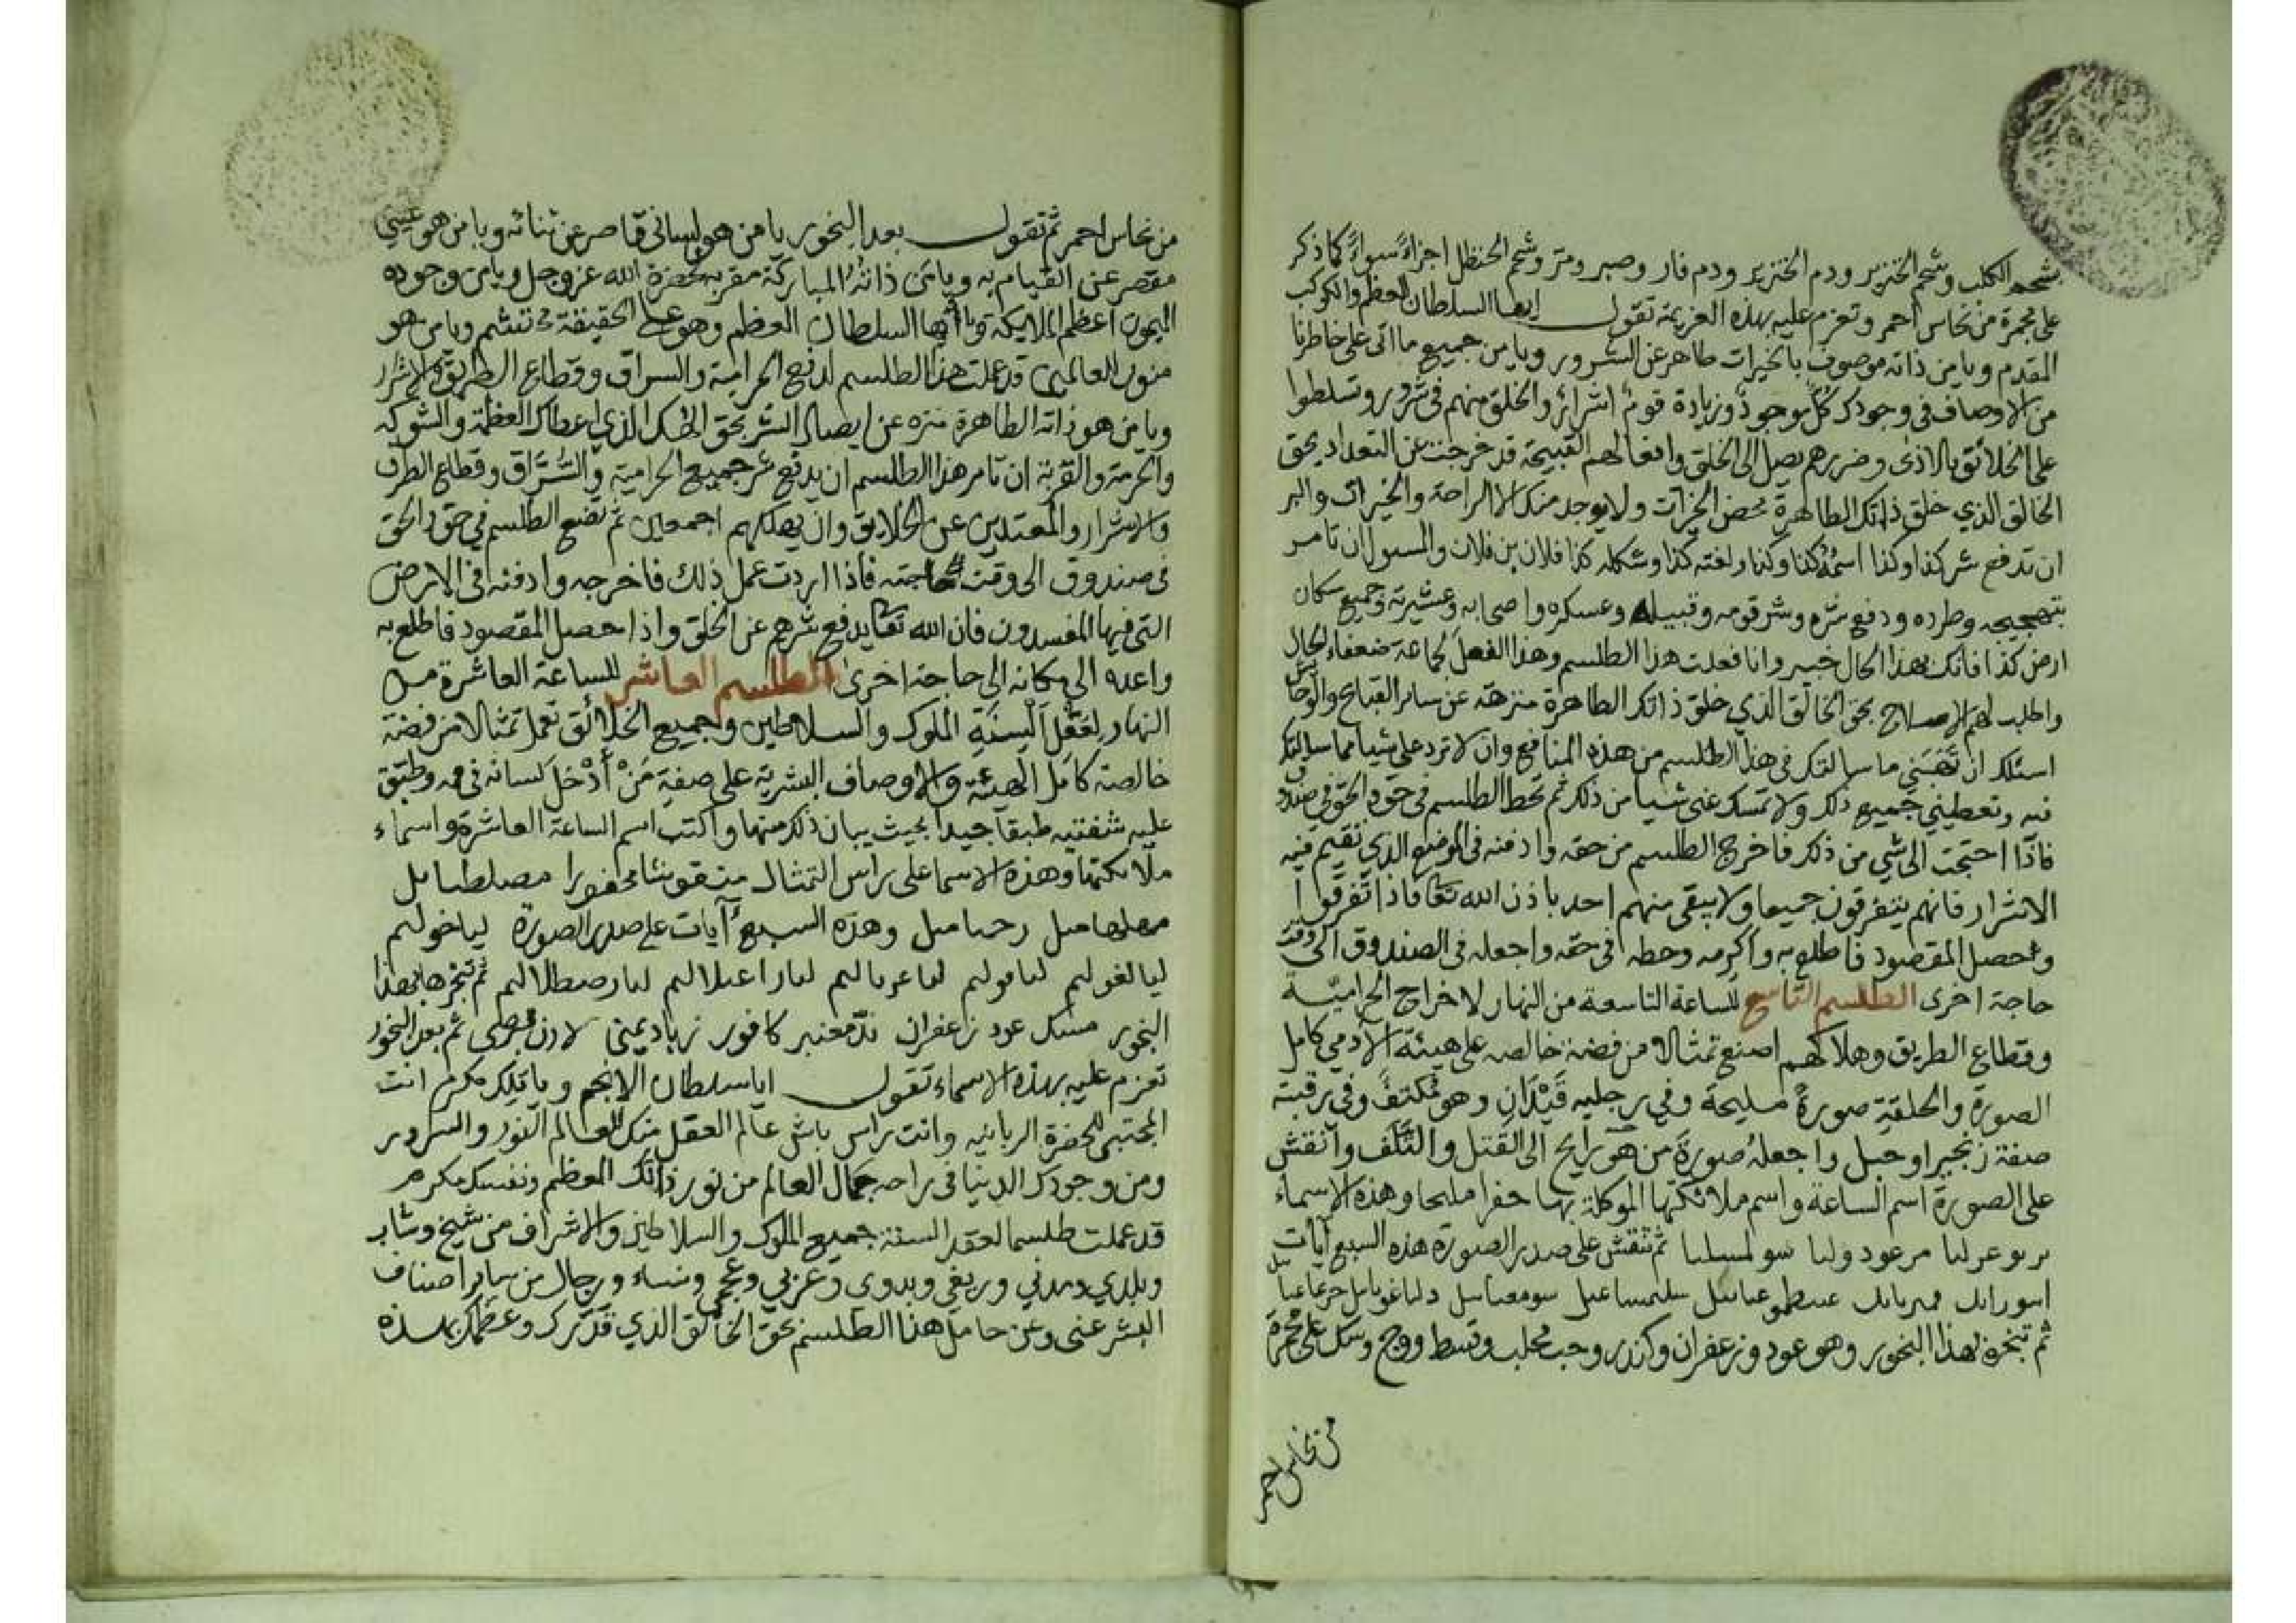 شحم الكلب وشحم الخنزير ودم الخنزير ودم فار وصبر ومر وشحم الحنظل اجزاءً سواءً كما ذكر
على مجمرة من نحاس احمر وتعزم عليه بهذه العزيمة تقول ايها السلطان العظم والكوكب
المقدم ويا من ذاته موصوف بالخيرات طاهر عن الشرور ويا من جميع ما اتى على خاطرنا
من الاوصاف في وجودك كل موجود وزيادة قوم اشرار والخلق منهم في شرور وتسلطوا
على الخلائق بالاذى وضررهم يصل الى الخلق وافعالهم القبيحة قد خرجت عن التعداد بحق
الخالق الذي خلق ذاتك الطاهرة محض الخيرات ولا يوجد منك الا الراحة والخيرات والبر
ان تدفع شر كذا وكذا اسمه كذا وكذا ولغته كذا وشكله كذا فلان بن فلان والمسول ان تامر
بتهجيجه وطرده ودفع شره وشر قومه وقبيله وعسكره واصحابه وعشيرته وجميع سكان
ارض كذا فانك بهذا الحال خبير وانا فعلت هذا الطلسم وهذا الفعل لجماعة ضعفاء الحال
واطلب لهم الاصلاح بحق الخالق الذي خلق ذاتك الطاهرة منزهة عن ساير القبايح
اسئلك ان تهبني ما سالتك في هذا الطلسم من هذه المنافع وان لا ترد علي شيا مما سالتك
فيه وتعطيني جميع ذلك ولا تمسك عني شيا من ذلك ثم تحط الطلسم في حق والحق في صندوق
فاذا احتجت الى شي من ذلك فاخرج الطلسم من حقه وادفنه في الموضع الذي تقيم فيه
الاشرار فانهم يتفرقون جميعا ولا يبقى منهم احد باذن الله تعا فاذا تفرقوا
وحصل المقصود فاطلع به واكرمه وحطه في حقه واجعله في الصندوق الى وقت
حاجة اخرى الطلسم التاسع للساعة التاسعة من النهار لاخراج الحرامية
وقطاع الطريق وهلاكهم اصنع تمثالا من فضة خالصه على هيئة الادمي كامل
الصورة والخلقة صورة مليحة وفي رجليه قيدان وهو مكتف وفي رقبته
صفة زنجير او حبل واجعله صورة من هو رايح الى القتل والتلف وانقش
على الصورة اسم الساعة واسم ملائكتها الموكلة بها حفرا مليحا وهذه الاسماء
ثم تنقش على صدر الصورة هذه السبع آيات
ثم تبخره بهذا البخور وهو عود وزعفران وكندر وحب محلب وقسط ووج على مجمرة
من نحاس احمر
من نحاس احمر ثم تقول بعد البخور يا من هو لساني قاصر عن ثنائه ويا من هو عيني
مقصر عن القيام به ويا من ذاته المباركة مقربة لحضرة الله عز وجل ويا من وجوده
الميمون اعظم الملايكة ويا ايها السلطان العظم وهو على الحقيقة محتشم ويا من هو
منور العالمين قد عملت هذا الطلسم لدفع الحرامية والسراق وقطاع الطريق والاشرار
ويا من هو ذاته الطاهرة منزه عن ايصال الشر بحق الملك الذي اعطاك العظمة والشوكه
والحرمة والقربة ان تامر هذا الطلسم ان يدفع شر جميع الحرامية والسُّرَّاق وقطاع الطرق
والاشرار والمعتدين عن الخلايق وان يهلكهم اجمعين ثم تضع الطلسم في حق والحق
في صندوق الى وقت حاجته فاذا اردت عمل ذلك فاخرجه وادفنه في الارض
التي فيها المفسدون فان الله تعا يدفع شرهم عن الخلق واذا حصل المقصود فاطلع به
واعده الى مكانه الى حاجة اخرى الطلسم العاشر للساعة العاشرة من
النهار لعقد السنة الملوك والسلاطين وجميع الخلائق تعمل تمثالا من فضة
خالصة كامل الهيئة والاوصاف البشرية على صفة مَنْ أَدْخل لسانه في فمه وطبق
عليه شفتيه طبقا جيدا بحيث يبان ذلك منها واكتب اسم الساعة العاشرة واسماء
ملائكتها وهذه الاسما على راس التمثال منقوشا محفورا
وهذه السبع آيات على صدر الصورة
ثم تبخرها بهذا
البخور مسك عود زعفران ند معنبر كافور زباد يمني لادن ثم بعد البخور
تعزم عليه بهذه الاسماء تقول ايا سلطان الانجم ويا ملك مكرم انت
المجتبى للحضرة الربانيه وانت راس باش عالم العقل منك العالم النور والسرور
ومن وجودك الدنيا في راحه جمال العالم من نور ذاتك المعظم ونفسك مكرم
قد عملت طلسما لعقد السنة جميع الملوك والسلاطين والاشراف من شيخ وشاب
وبلدي ومدني وريفي وبدوي وعربي وعجمي ونساء ورجال من ساير اصناف
البشر عني وعن حامل هذا الطلسم بحق الخالق الذي قدرك وعظمك بهذه